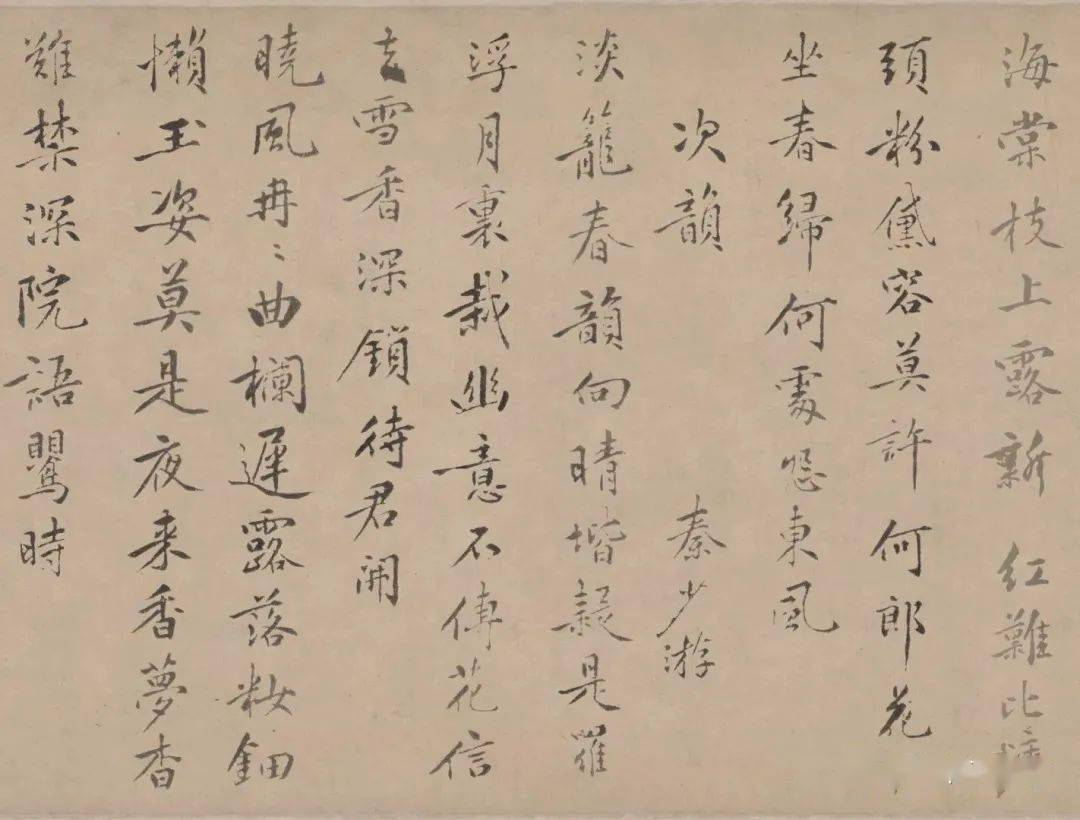 海棠枝上露新紅難比牆
頭粉黛容莫許何郎花
坐春歸何處怨東風
次韻 秦少游
淡籠春韻向晴堦疑是羅
浮月裏栽幽意不傳花信
去雪香深鎖待君開
曉風冉〻曲欄遲露落妝鈿
懶玉姿莫是夜来香夢杳
難禁深院語鶯時